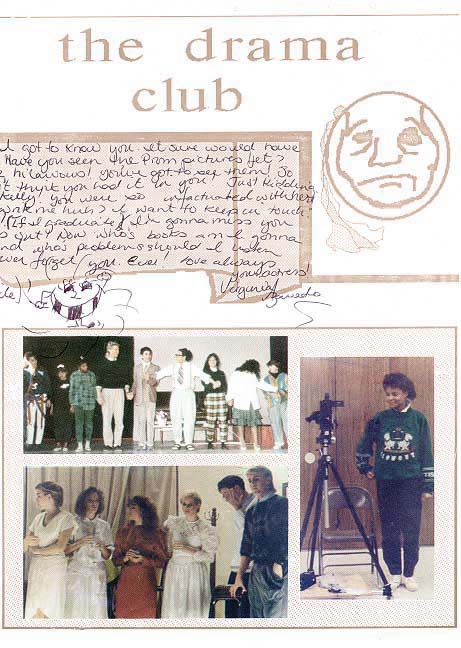 the drama
club
I got to know you it sure would have
Have you seen the Prom pictures yet?
hilarious! you've got to see them! So
think you had it in you. Just kidding
you were so infactuated with her
huh? I want to keep in touch
(If I graduate) I'm gonna miss you
Now who's books am I gonna
and who's problems should I listen
ever forget you. Ever! love always
your actress!
Virginia